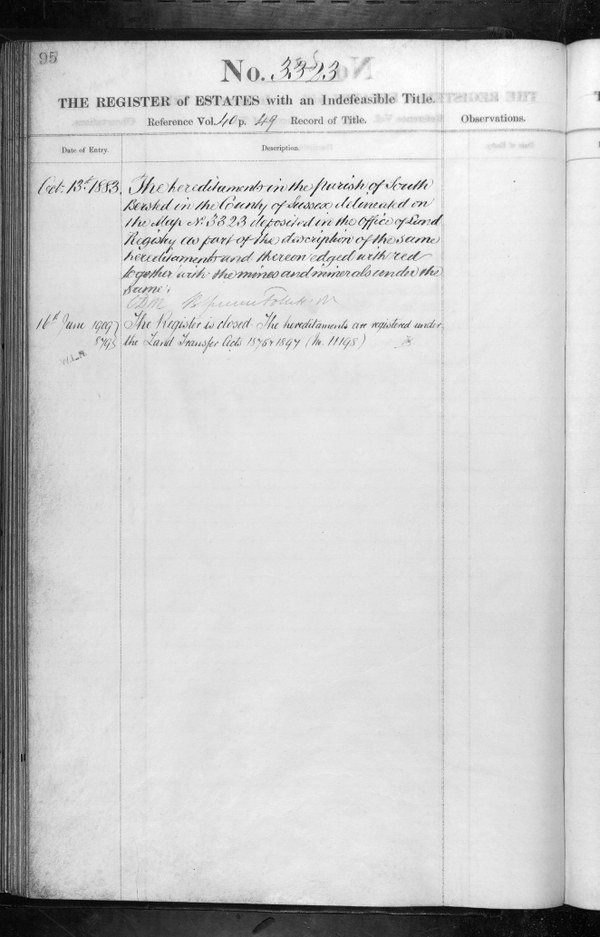 95
No. 3323
THE REGISTER of ESTATES with an Indefeasible Title.
Reference Vol. 40 p. 49 Record of Title.
Observations.
Date of Entry.
Description.
Oct. 13th 1883.
The hereditaments in the parish of South
Bersted in the County of Sussex delineated on
the Map No. 3323 deposited in the office of Land
Registry as part of the description of the same
hereditaments and thereon edged with red
together with the mines and minerals under the
same.
16th June 1909
8795
The Register is closed The hereditaments are registered under
the Land Transfer Acts 1875 & 1897 (No. 11198)